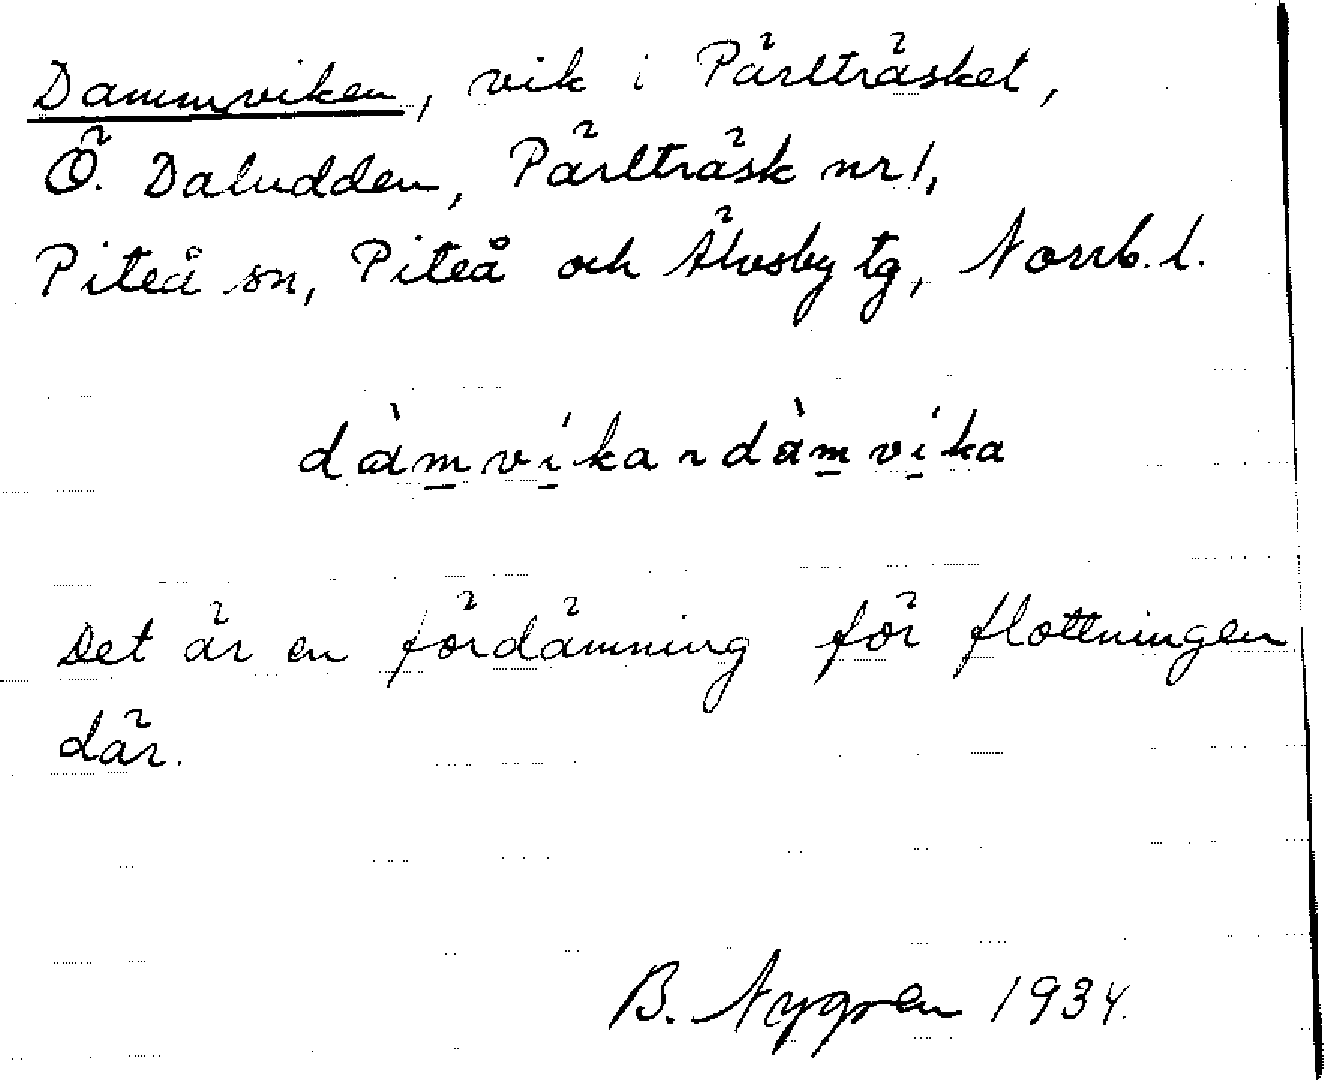 Dammviken, vik i Pärlträsket,
Ö. Daludden, Pärlträsk nr 1,
Piteå sn, Piteå och Älvsby tg, Norrb. l.
dàmvíka ~ dàmvíka
Det är en fördämning för flottningen
där.
B. Nygren 1934.